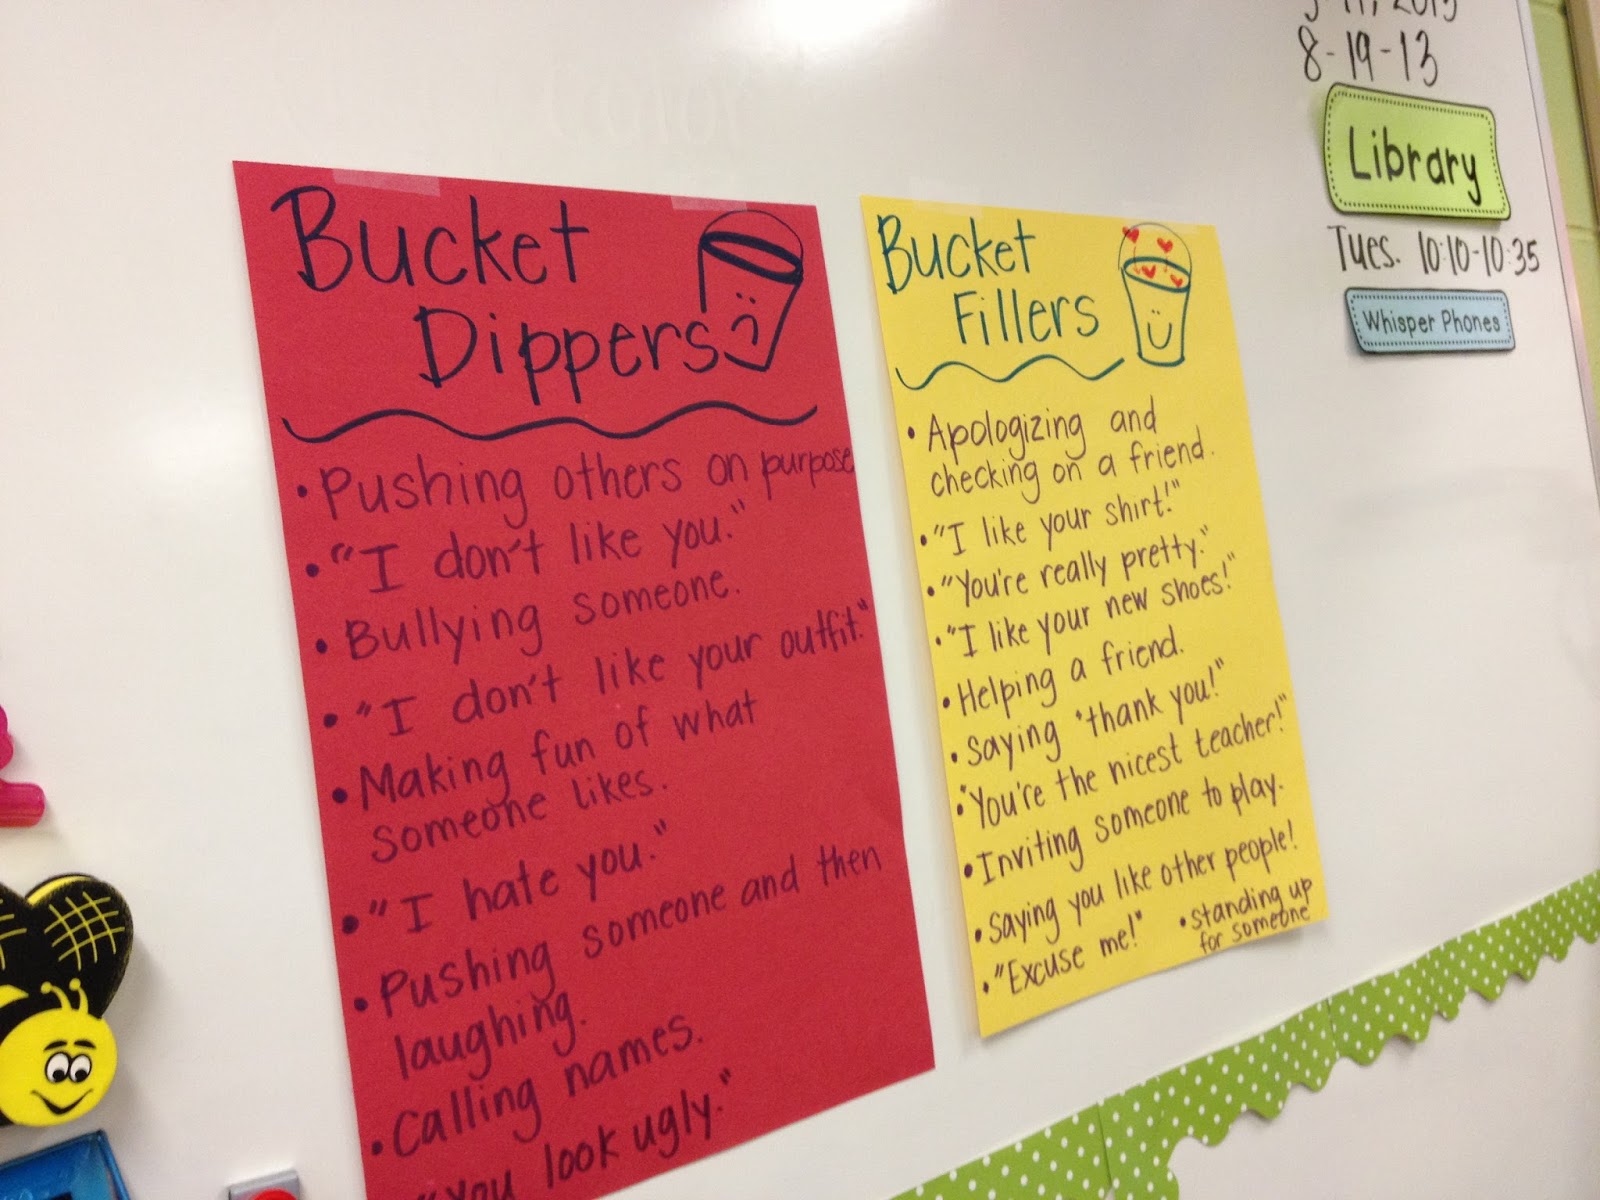 Bucket
Dippers
• Pushing others on purpose
• "I don't like you."
• Bullying someone.
• "I don't like your outfit."
• Making fun of what
someone likes.
• "I hate you."
• Pushing someone and then
laughing.
• Calling names.
"You look ugly."
Bucket
Fillers
• Apologizing and
checking on a friend.
• "I like your shirt!"
• "You're really pretty."
• "I like your new shoes!"
• Helping a friend.
• Saying "thank you!"
• "You're the nicest teacher!"
• Inviting someone to play.
• Saying you like other people!
• "Excuse me!"
• Standing up
for someone
8-19-13
Library
Tues. 10:10-10:35
Whisper Phones